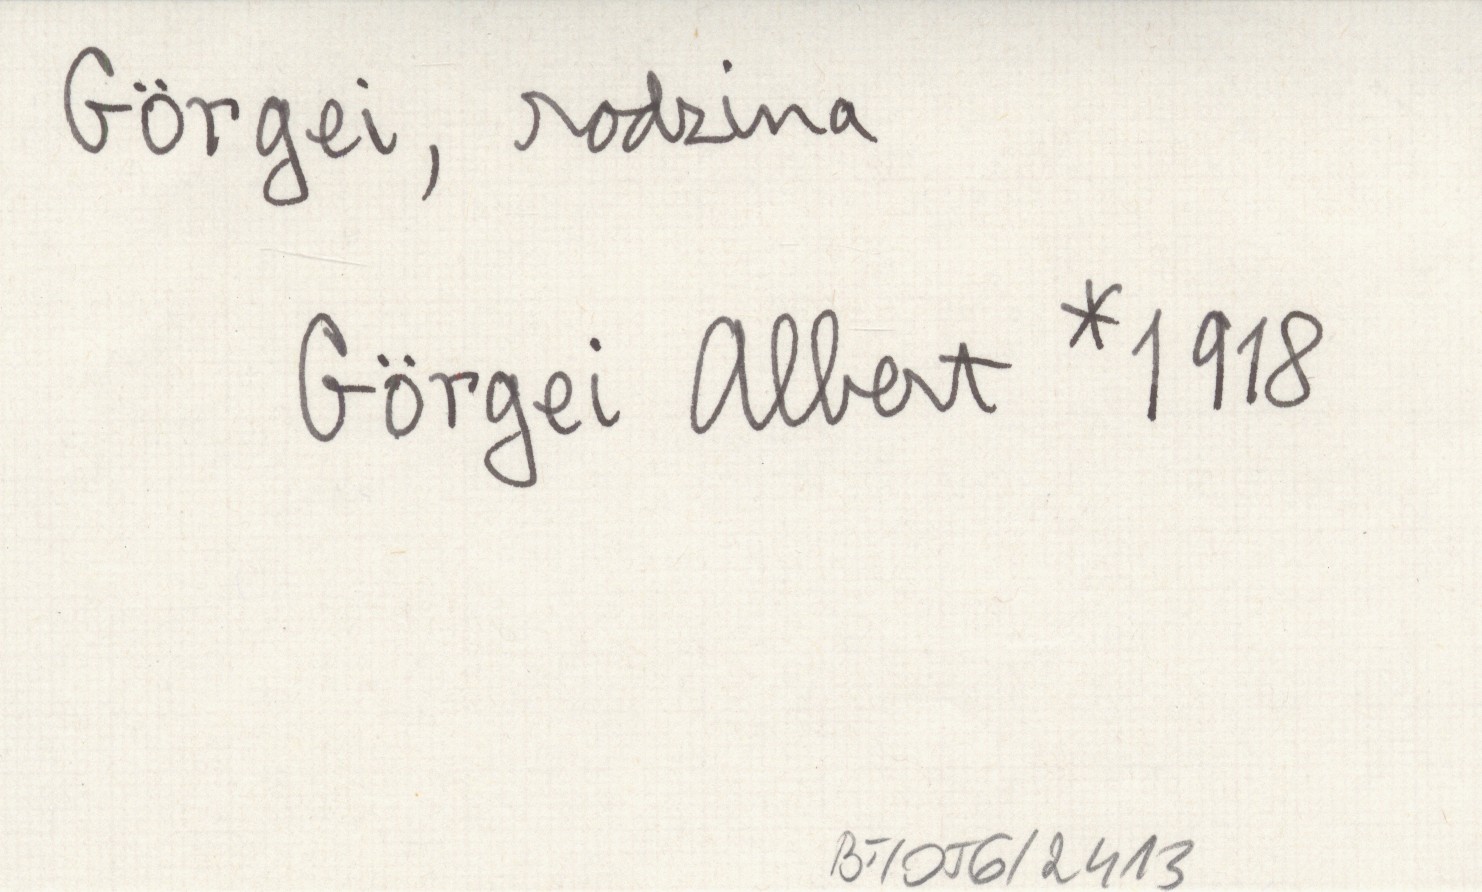 Görgei, rodzina
Görgei Albert *1918
BT/OJG/2413